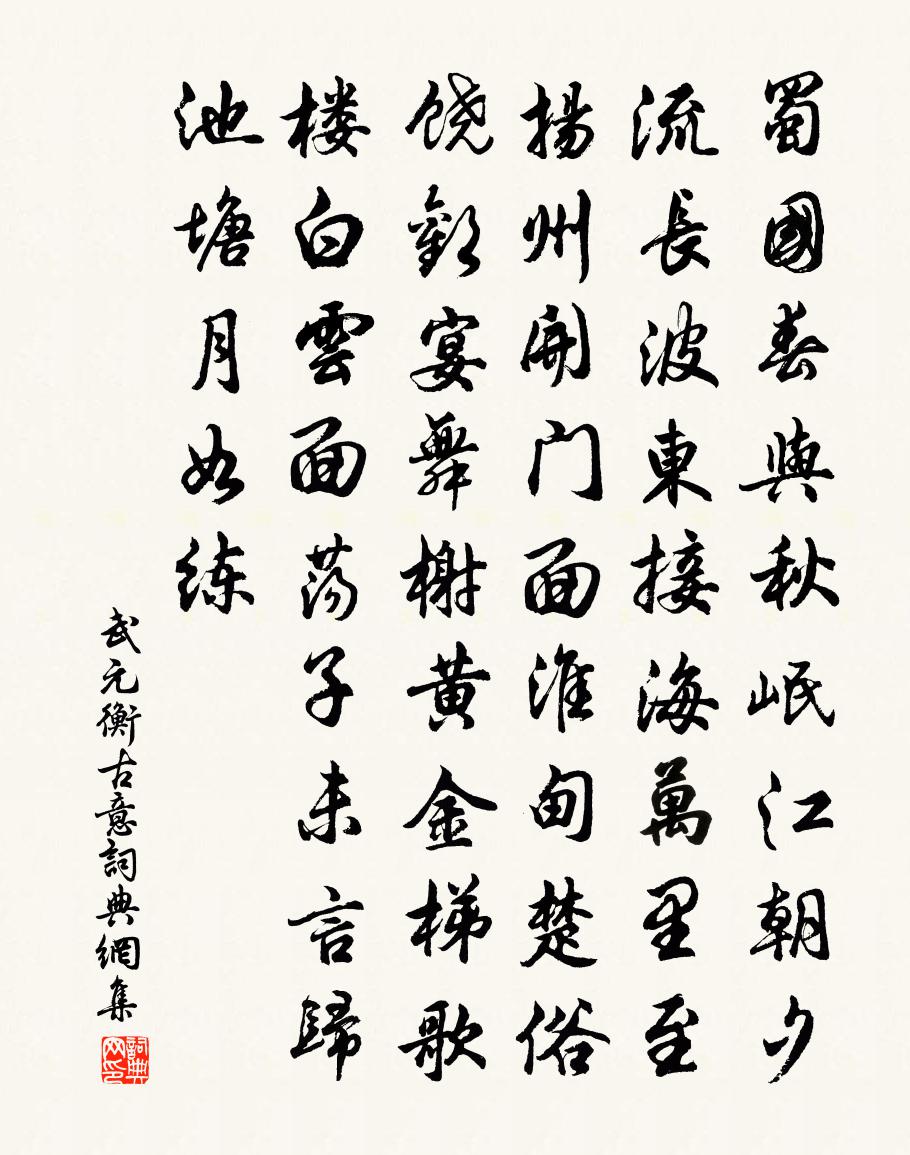 蜀國春與秋岷江朝夕
流長波東接海萬里至
揚州開门面淮甸楚俗
饶歡宴舞榭黄金梯歌
楼白雲面荡子未言歸
池塘月如练
武元衡古意詞典網集
詞典网印